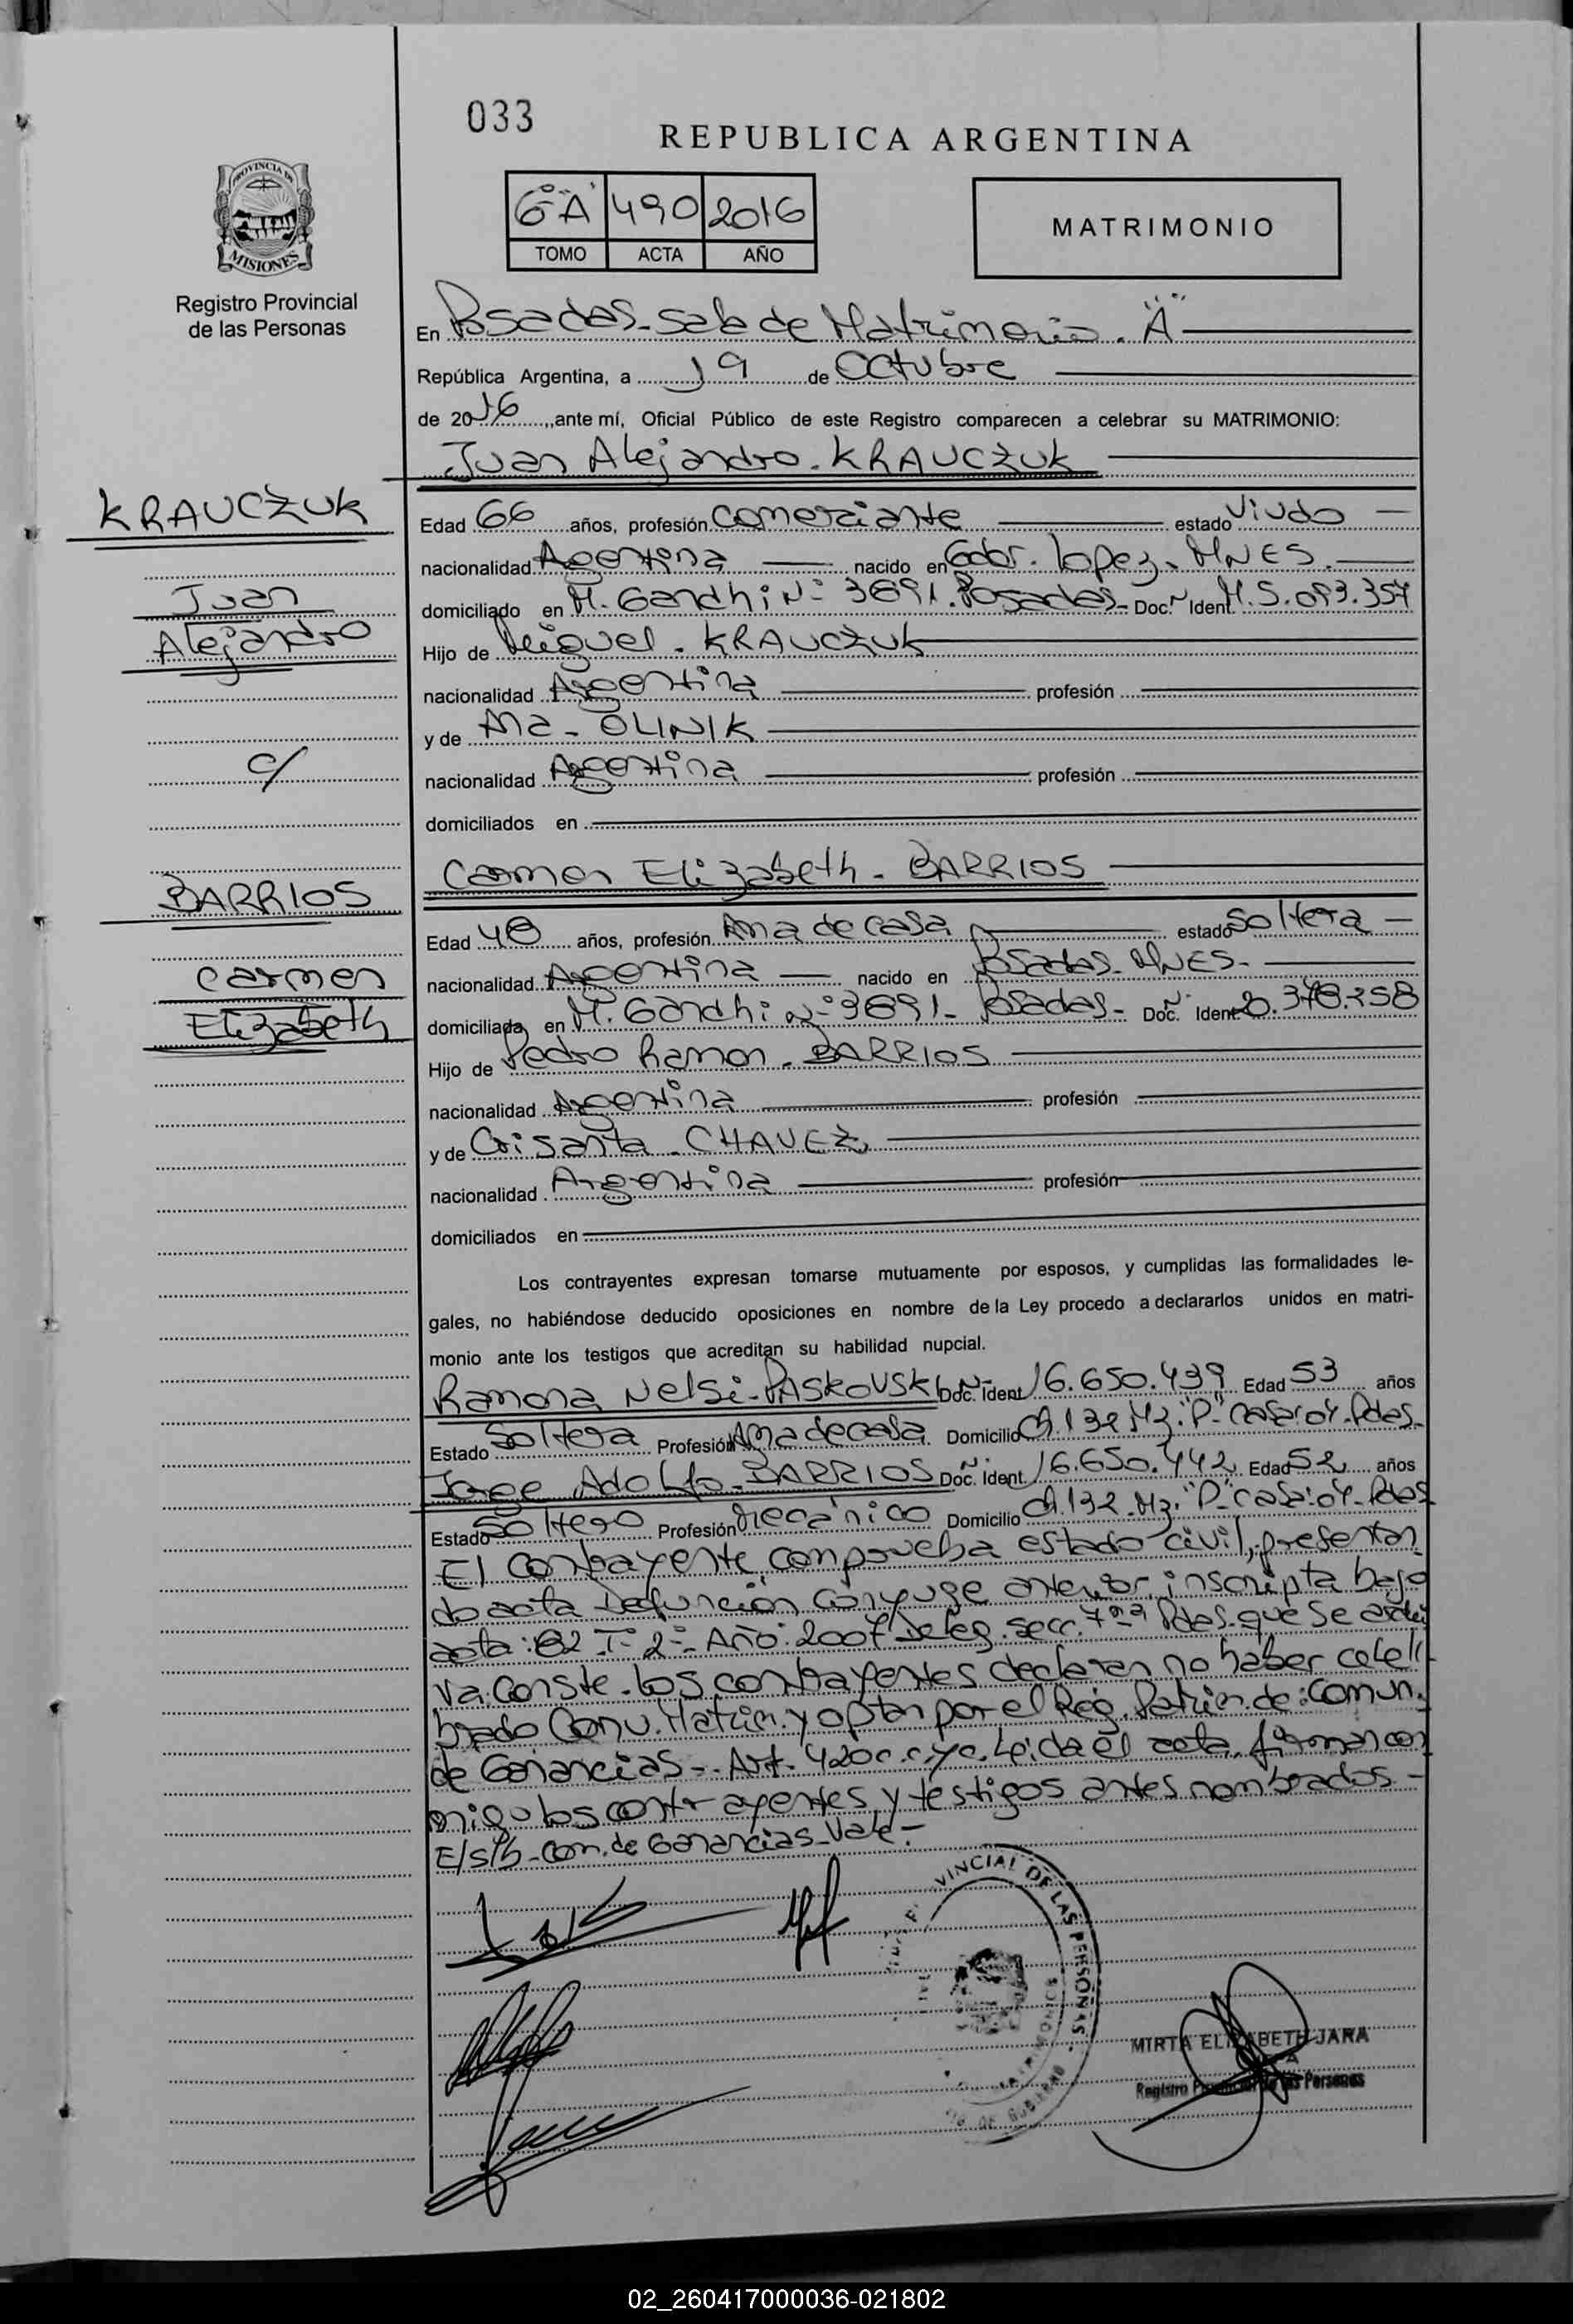 033
REPUBLICA ARGENTINA
6º "A" 490 2016
TOMO ACTA AÑO
MATRIMONIO
PROVINCIA DE
MISIONES
Registro Provincial
de las Personas
En Posadas-Sala de Matrimonio. "A"
República Argentina, a 19 de Octubre
de 2016, ante mí, Oficial Público de este Registro comparecen a celebrar su MATRIMONIO:
Juan Alejandro. KRAUCZUK
KRAUCZUK
Juan
Alejandro
c/
BARRIOS
Carmen
Elizabeth
Edad 66 años, profesión Comerciante estado Viudo
nacionalidad Argentina nacido en Gdor. Lopez. MNES.
domiciliado en M. Gandhi Nº 3691. Posadas- Doc. Ident M. 5.083.357
Hijo de Miguel. KRAUCZUK
nacionalidad Argentina profesión
y de Ana - OLINIK
nacionalidad Argentina profesión
domiciliados en
Carmen Elizabeth - BARRIOS
Edad 48 años, profesión Ama de casa estado Soltera
nacionalidad Argentina nacido en Posadas-MNES-
domiciliada en M. Gandhi Nº 3691- Posadas- Doc. Ident 20.378.258
Hijo de Pedro Ramon. BARRIOS
nacionalidad Argentina profesión
y de Crisanta - CHAVEZ
nacionalidad Argentina profesión
domiciliados en
Los contrayentes expresan tomarse mutuamente por esposos, y cumplidas las formalidades le-
gales, no habiéndose deducido oposiciones en nombre de la Ley procedo a declararlos unidos en matri-
monio ante los testigos que acreditan su habilidad nupcial.
Ramona Nelsi-PASKOVSKI Doc. Ident 16.650.439 Edad 53 años
Estado Soltera Profesión Ama de casa Domicilio Ch.132 Mz."P" casa:04-Pdas-
Jorge Adolfo-BARRIOS Doc. Ident. 16.650.442 Edad 52 años
Estado Soltero Profesión Mecánico Domicilio Ch.132.Mz."P" casa:04-Pdas
El contrayente comprueba estado civil, presentan
do acta Defunción Cónyuge anterior inscripta bajo
acta: 82-Tº 2º-Año: 2007 Deleg. Secc. 7ma Pdas. que se archi
va. Conste. los contrayentes declaran no haber cele//
brado Conv. Matrim. y optan por el Reg. Patrim de: Comun.
de Ganancias-. Art. 420 c.c.yc. Leida el acta, firman con
migo los contrayentes y testigos antes nombrados-
E/s/b-Com. de Ganancias-Vale-
VINCIAL DE LAS PERSONAS
MIRTA ELIZABETH JARA
Registro Provincial de las Personas
02_260417000036-021802